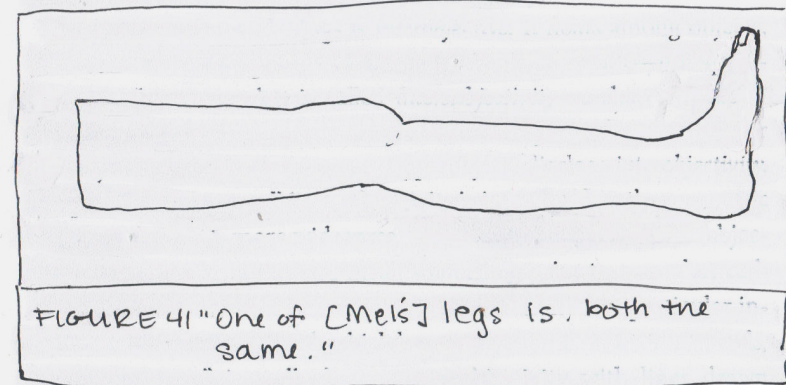 FIGURE 41 "One of [Mel's] legs is both the
same."